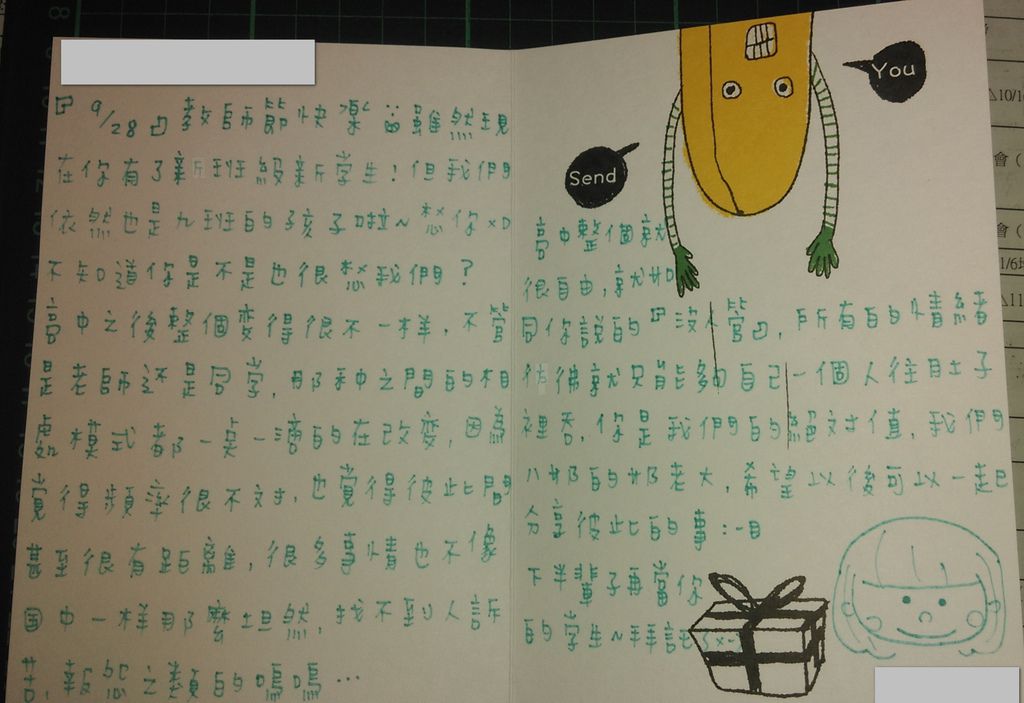 『9/28』教師節快樂 雖然現
在你有了新班級新學生!但我們
依然也是九班的孩子啦~ 愁你xD
不知道你是不是也很愁我們?
高中之後整個變得很不一樣,不管
是老師还是同学,那種中之間的相
處模式都一点一滴的在改變,因為
覺得頻率很不対,也覺得彼此間
甚至很有距離,很多事情也不像
國中一樣那麼坦然,找不到人訴
苦,報怨之類的嗚嗚…
Send
You
高中整個就
很自由,就如
同你說的『沒人管』,所有的情緒
彷彿就只能夠自己一個人往肚子
裡吞,你是我們的絕対值,我們
八奶的奶老大,希望以後可以一起
分享彼此的事:-D
下半輩子再當你
的学生~拜託
10/1
會(
會(
1/6
11